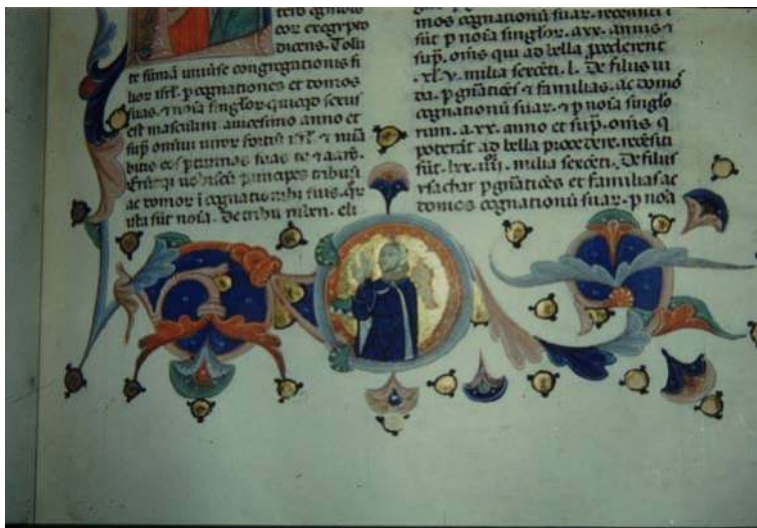 cor ex egypto
dicens. Tolli
te sumā uniuse congregationis fi
lior isrl. p cognationes et domos
suas. & noīa singlor quicqd sexus
est masculini. a uicesimo anno et
sup. omiū uiror fortiū
bitis eos p turmas suas tu & aarō.
uobiscū principes tribuū
ac domor ī cognationibz suis. qr
ista sūt noīa. De tribu ruben. eli
mos cognationū suar. recensiti
sūt p noīa singlor. a xx. annis &
sup. omīs qui ad bella procederent
.xl. v. milia sexcēti. l. De filiis iu
da. p gnatōes & familias. ac domos
cognationū suar. & p noīa singlo
rum. a xx. anno et sup. omīs q
poterāt ad bella procedere. recēsiti
sūt. lxx. iiii. milia sexcēti. De filiis
ysachar p gnatōes et familias ac
domos cognationū suar. p noīa